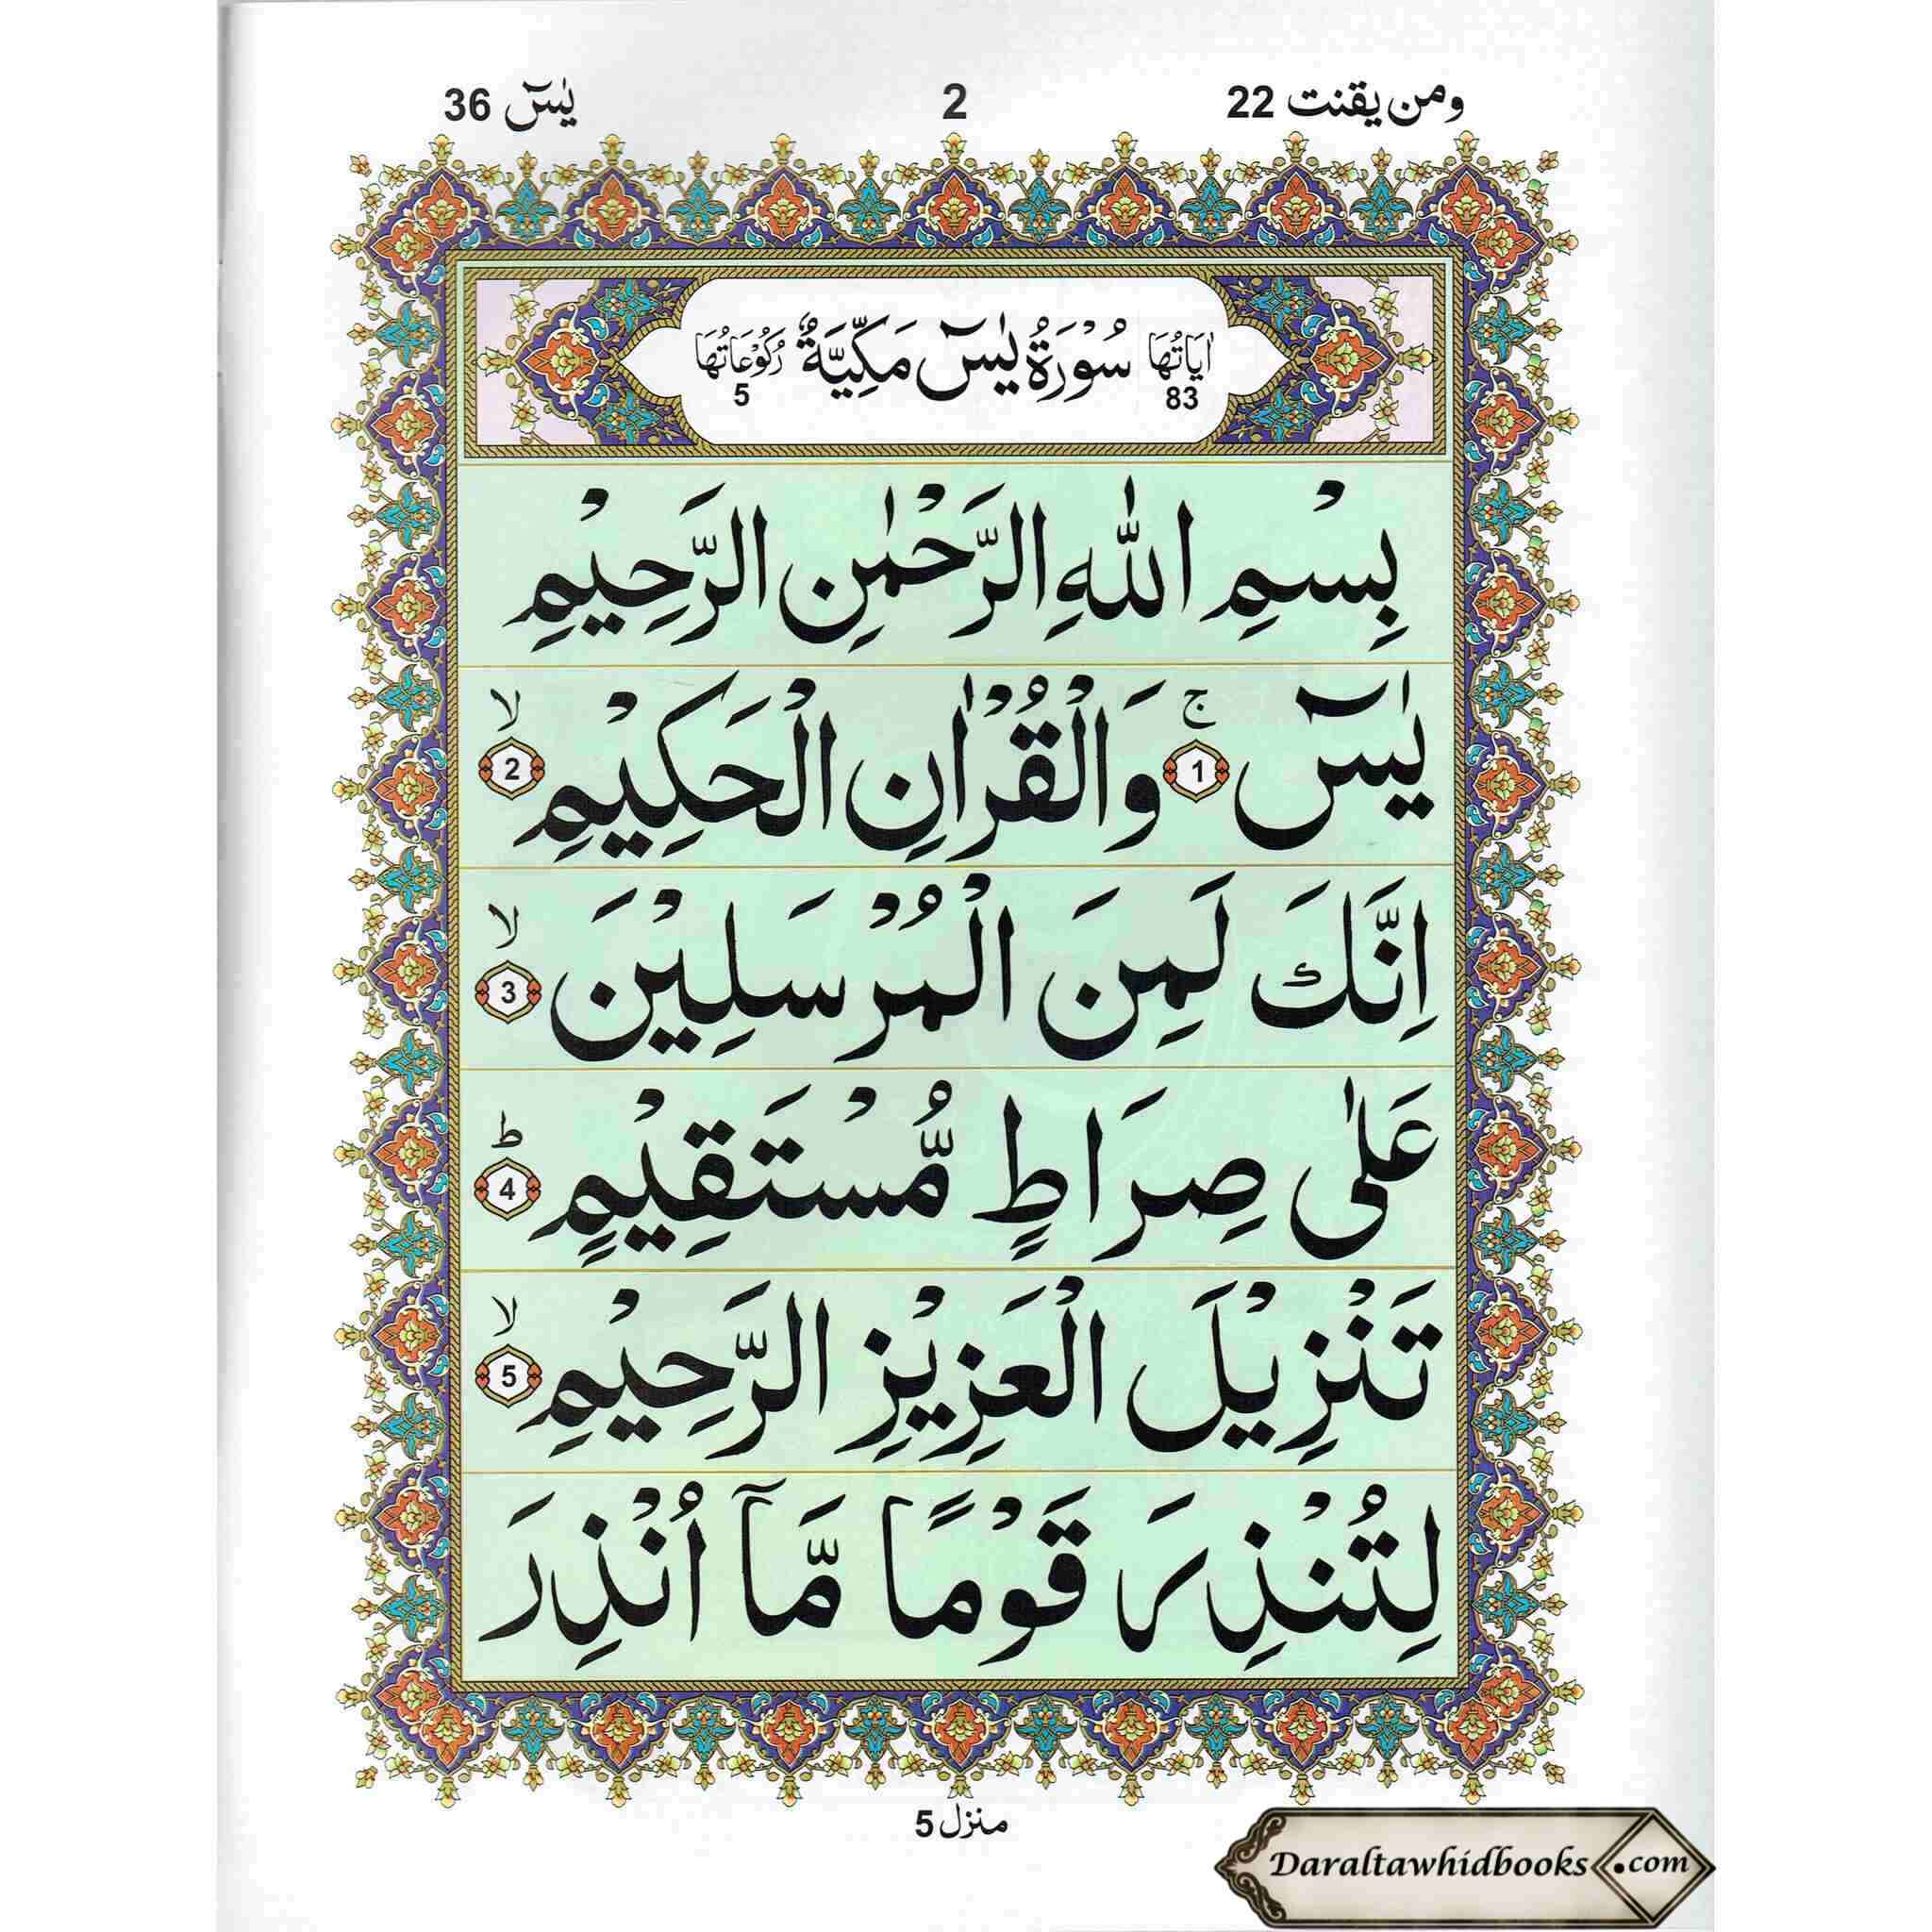 ومن يقنت 22 2 يٰسٓ 36
اٰيَاتُهَا سُوْرَةُ يٰسٓ مَكِّيَّةٌ رُكُوْعَاتُهَا
83 5
بِسْمِ اللّٰهِ الرَّحْمٰنِ الرَّحِيْمِ
يٰسٓ ج 1 وَالْقُرْاٰنِ الْحَكِيْمِ لا 2
اِنَّكَ لَمِنَ الْمُرْسَلِيْنَ لا 3
عَلٰى صِرَاطٍ مُّسْتَقِيْمٍ ط 4
تَنْزِيْلَ الْعَزِيْزِ الرَّحِيْمِ لا 5
لِتُنْذِرَ قَوْمًا مَّآ اُنْذِرَ
منزل 5
Daraltawhidbooks.com